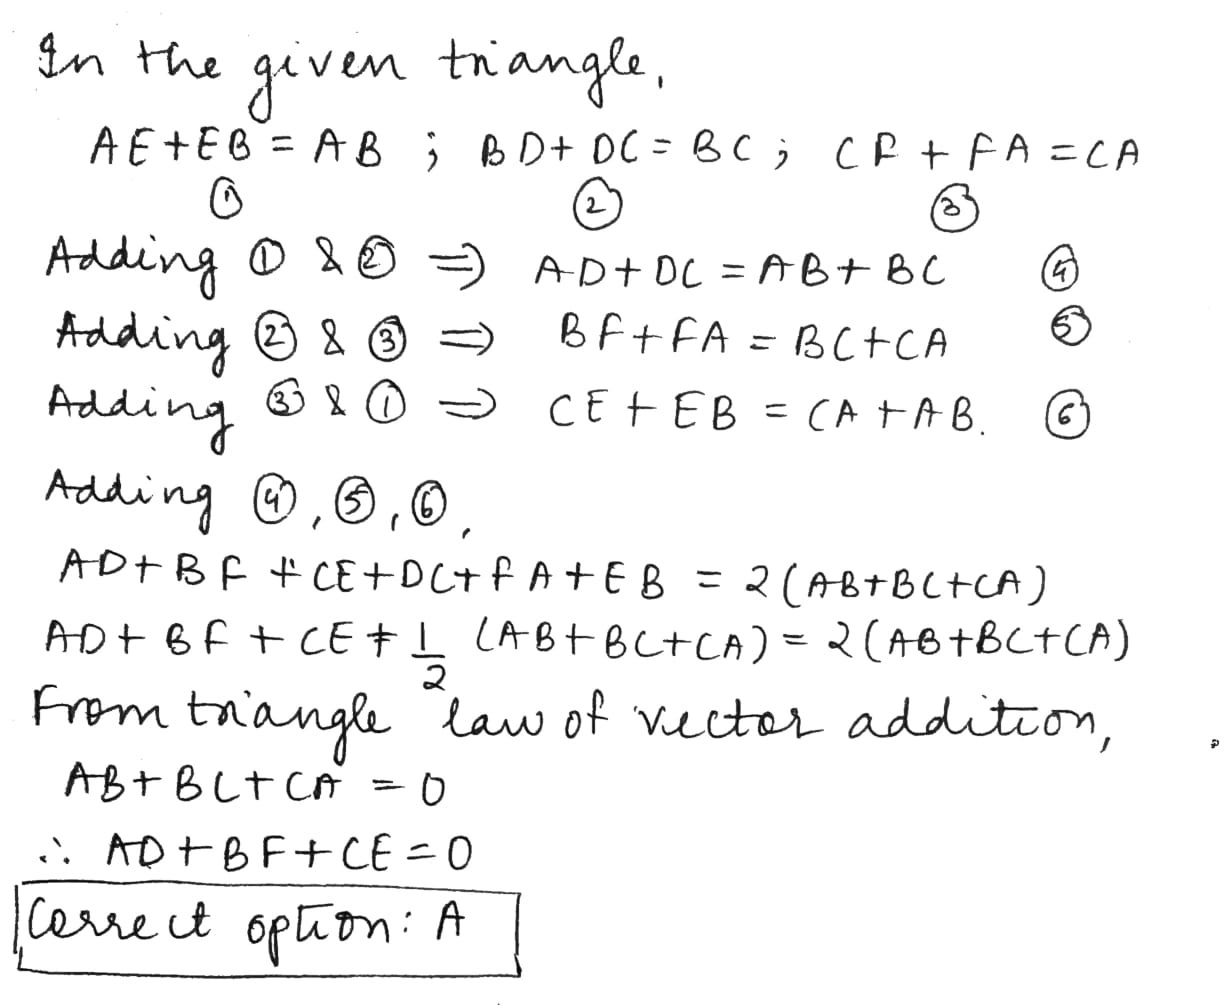 In the given triangle,
AE+EB = AB ; BD+ DC = BC ; CF + FA = CA
① ② ③
Adding ① & ② ⇒ AD+ DC = AB+ BC ④
Adding ② & ③ ⇒ BF+FA = BC+CA ⑤
Adding ③ & ① ⇒ CE + EB = CA +AB. ⑥
Adding ④, ⑤, ⑥,
AD+ BF + CE+DC+ FA+EB = 2(AB+BC+CA)
AD+ BF + CE + 1/2 (AB+BC+CA) = 2(AB+BC+CA)
From triangle law of vector addition,
AB+ BC+ CA = 0
∴ AD +BF+ CE = 0
Correct option: A